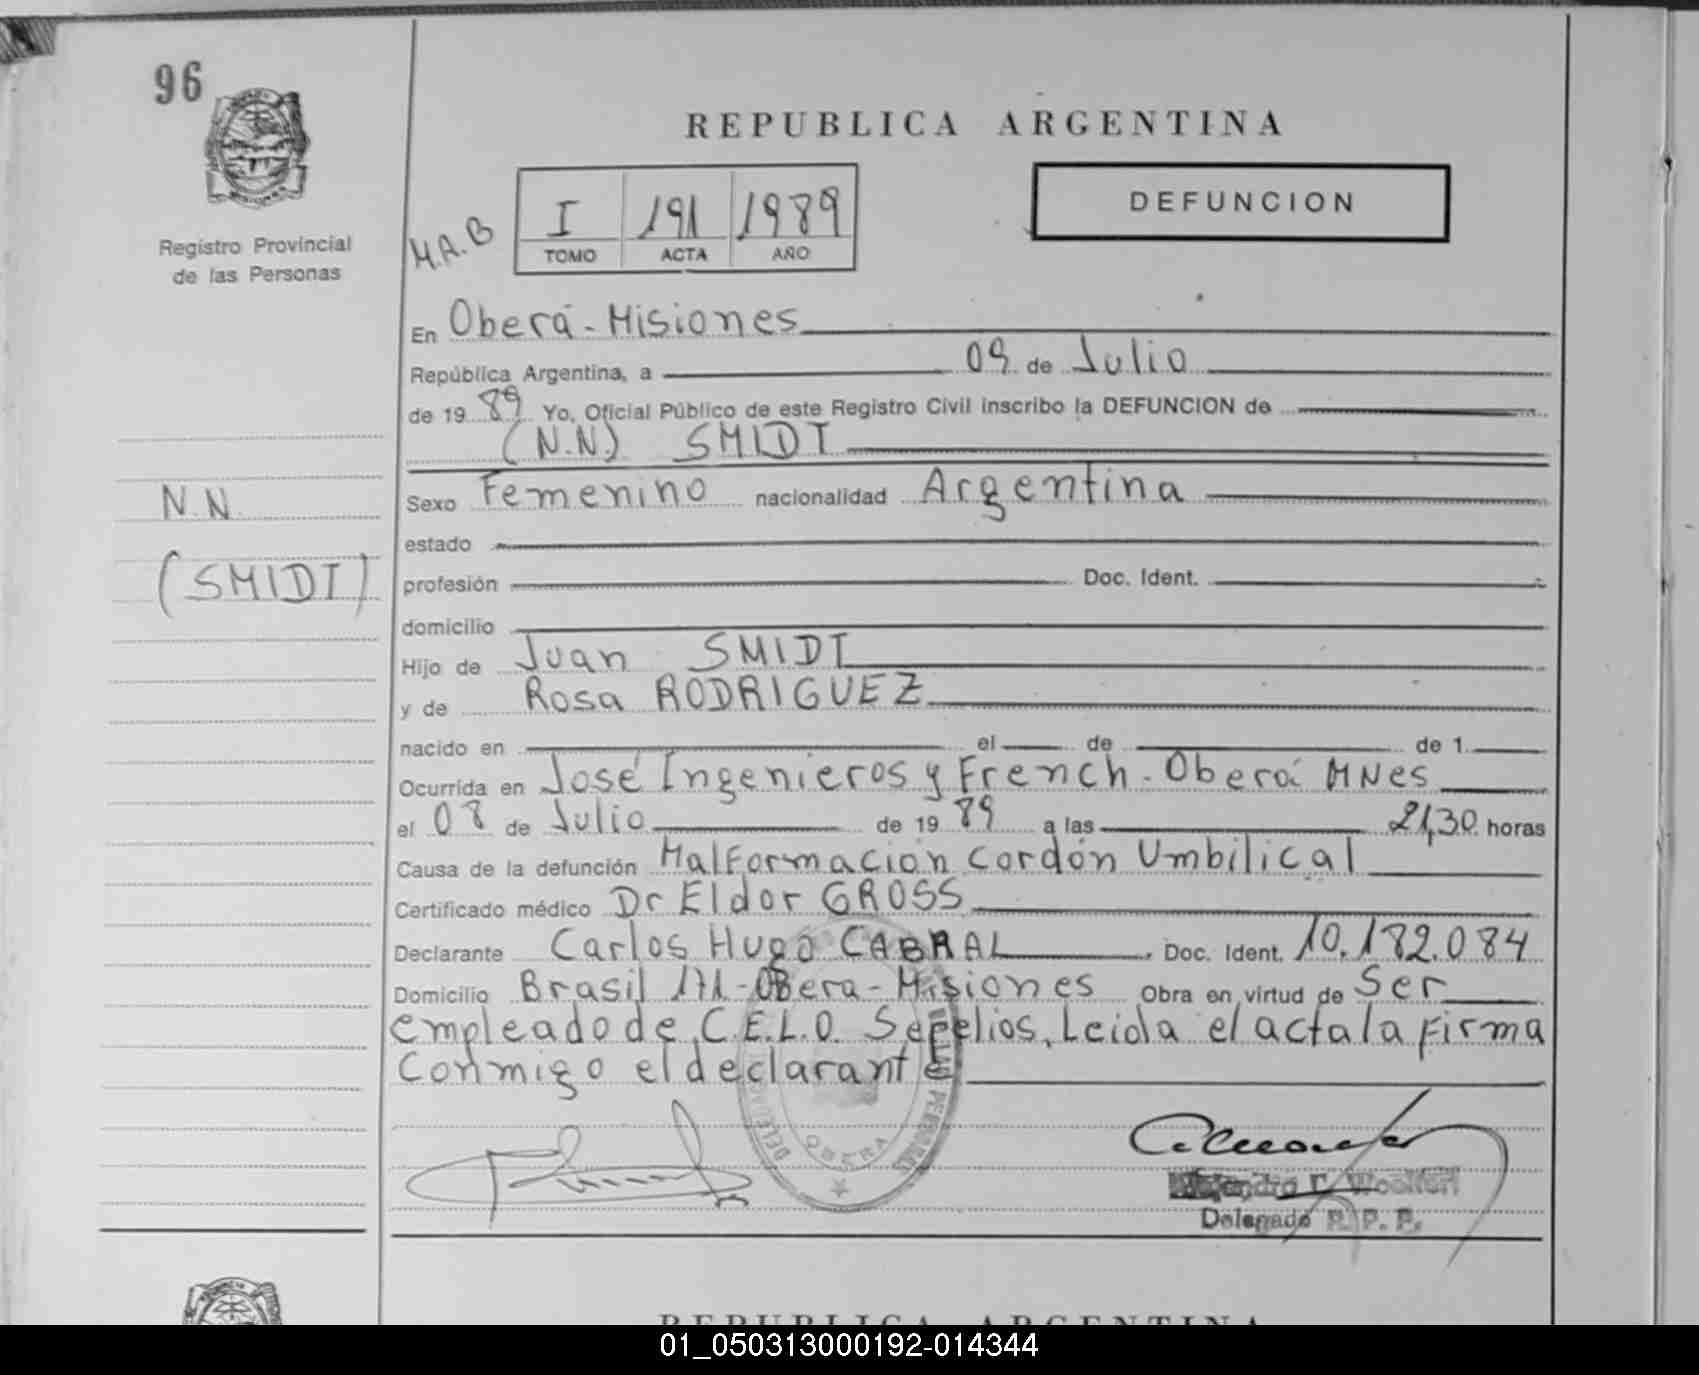 96
REPUBLICA ARGENTINA
DEFUNCION
Registro Provincial
de las Personas
M.A.B
I 191 1989
TOMO ACTA AÑO
En Oberá - Misiones
República Argentina, a 09 de Julio
de 19 89 Yo, Oficial Público de este Registro Civil inscribo la DEFUNCION de
(N.N) SMIDT
N.N.
(SMIDT)
Sexo Femenino nacionalidad Argentina
estado
profesión Doc. Ident.
domicilio
Hijo de Juan SMIDT
y de Rosa RODRIGUEZ
nacido en el de de 1
Ocurrida en José Ingenieros y French - Oberá MNes
el 08 de Julio de 19 89 a las 21,30 horas
Causa de la defunción Malformación cordón Umbilical
Certificado médico Dr Eldor GROSS
Declarante Carlos Hugo CABRAL, Doc. Ident. 10.182.084
Domicilio Brasil 171 - Obera - Misiones Obra en virtud de Ser
empleado de C.E.L.O. Sepelios, Leida el acta la firma
Conmigo el declarante
OBERA
Delegado R. P. P.
REPUBLICA ARGENTINA
01_050313000192-014344